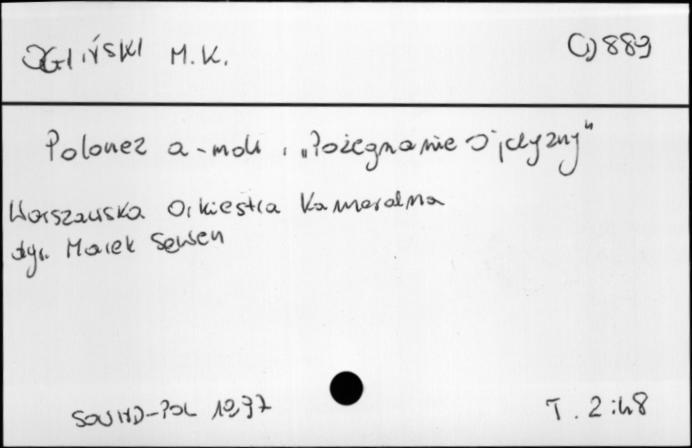 OGIŃSKI M.K.
CD 889
Polonez a-moll „Pożegnanie Ojczyzny"
Warszawska Orkiestra Kameralna
dyr. Marek Sewen
SOUND-POL 1997
T. 2:48